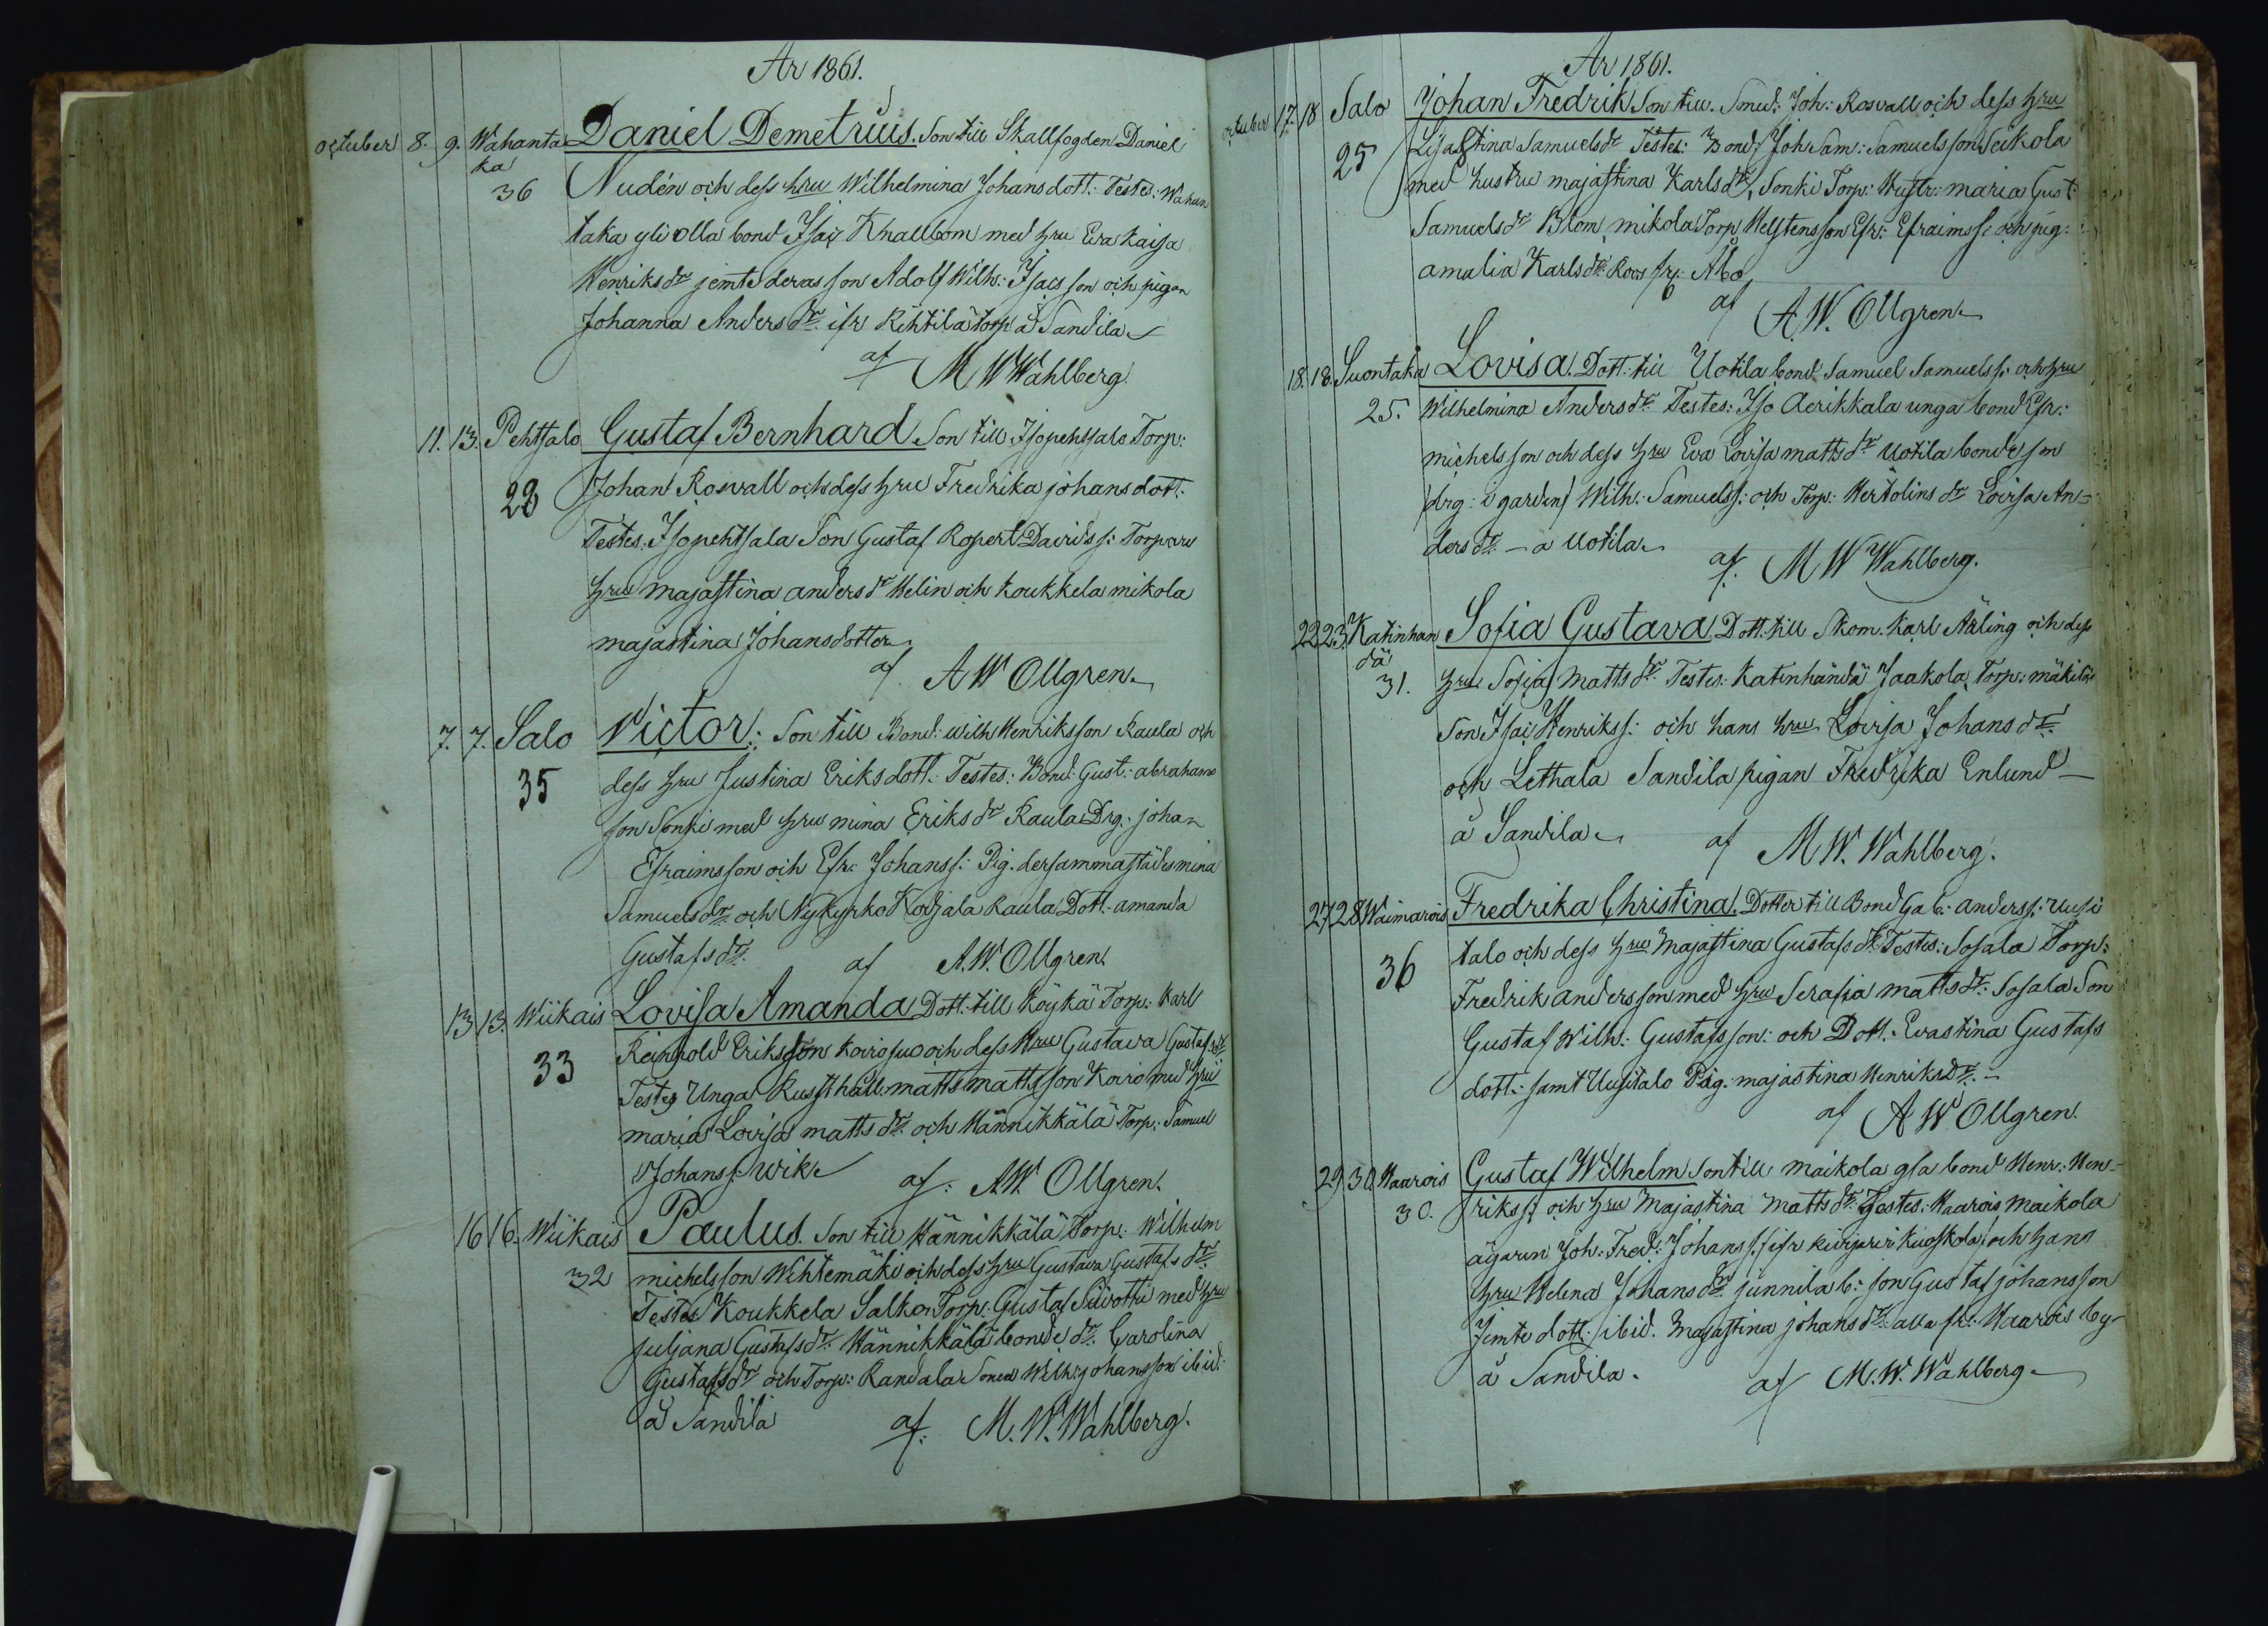 År 1861.
october 8. 9. Wahanta Daniel Demetrius. Son till Skallfogden Daniel
ka
36 Nudén och dess hru Wilhelmina Johansdott: Testes: Wahan
taka yli olla bond Isac Knallbom med hru Eva Kaisa
Henriksdr jemte deras son Adolf Wilh: Isacsson och pigan
Johanna Andersdr ifr Rihtilä torp å Sandila
af M W Wahlberg.
11. 13. Pehtsalo Gustaf Bernhard Son till Isopehtsalo Torp:
28 Johan Rosvall och dess hru Fredrika johansdott:
Testes. Isopehtsala Son Gustaf Ropert Davidss: Torpare
hru majastina andersdr Helin och Koukkela mikola
majastina Johansdotter
af A W Ollgren.
7. 7. Salo Victor: Son till Bond: wilh Henriksson Kaula och
35 dess hru Justina Eriksdott: Testes: Bond: Gust: abrahams
son Sonki med hru mina Eriksdr Kaula Drg: johan
Efraimsson och Efr: Johanss: Pig. dersammastädes mina
Samuelsdr och Nykyrko Kodjala Kaula Dott. amanda
Gustafsdr. af A. W. Ollgren.
13 13. Wiikais Lovisa Amanda Dott. till Köykä Torp: Karl
33 Reinhold Eriksson Koirosuo och dess Hru Gustava Gustafsdr
Testes Unga Rusthåll: matts mattsson Koiro med hru
maria Lovisa matts dr. och Männikkälä Torp: Samuel
Johanss: Wik af: A. W. Ollgren.
16 16. Wiikais Paulus. Son till Männikkälä Torp: Wilhelm
32 michelsson Wihtemäki och dess hru Gustava Gustafsdr.
Testes Koukkela Salko Torp: Gustaf Siivottu med hru
juljana Gustafsdr. Männikkälä bonde dr. Carolina
Gustafsdr och Torp: Randala Sonen Wilh: johansson ibid:
å Sandila af: M. W. Wahlberg.
År 1861.
october 17. 18 Salo Johan Fredrik Son till Smed: Joh: Rosvall och dess hru
25 Lisastina Samuelsdr Testes: Bond: Joh Sam: Samuelsson Seikola
med hustru majastina Karlsdr, Sonki Torp: Hustr: maria Gust:
Samuelsdr Blom, mikola Torp Helstensson Efr: Efraimss: och pig:
amalia Karlsdr: Roos fr: Åbo
af A. W. Ollgren
18. 18. Suontaka Lovisa. Dott: till Uotila bond Samuel Samuelss: och hru
25. Wilhelmina Andersdr Testes: Iso Aerikkala unga bond Efr:
michelsson och dess hru Eva Lovisa mattsdr Uotila bonde son
(drg: i garden) Wilh: Samuelss: och Torp: Hertolins dr Lovisa An-
dersdr: - å Uotila
af: M W Wahlberg.
22 23. Katinhan Sofia Gustava Dott. till Skom. Karl Årling och dess
dä
31. hru Sofia Mattsdr. Testes: Katinhändä Jaakola Torp: mäkilä
Son Isac Henrikss: och hans hru Lovisa Johansdr.
och Lethala Sandila pigan Fredrika Enlund
å Sandila af M. W. Wahlberg.
27 28 Waimarois Fredrika Christina. Dotter till Bond Gab: anderss: Uusi
36 talo och dess hru Majastina Gustafsdr Testes: Sosala Torp:
Fredrik andersson med hru Serafia mattsdr: Sosala Son
Gustaf Wilh: Gustafsson: och Dott. Evastina Gustafs
dott: samt Uusitalo Pig: majastina Henriksdr. -
af A W Ollgren.
29 30. Haarois Gustaf Wilhelm Son till maikola gla bond Henr: Hen-
30. rikss: och hru Majastina Mattsdr. Testes: Haarois Maikola
ägaren Joh: Fred: Johanss: (ifr och hans
hru Helena Johansdr junnila b: son Gustaf johansson
Jemte dott: ibid. Majastina johansdr: alla fr: Haarois by
å Sandila. af M. W. Wahlberg.